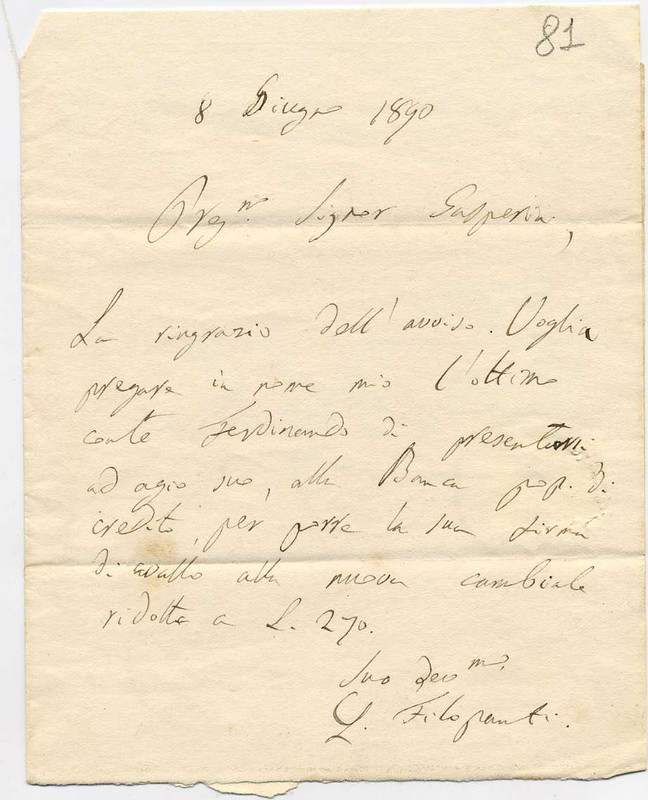 81
8 Giugno 1890
Preg.mo Signor Gasperini,
La ringrazio dell'avviso. Voglia
pregare in nome mio l'ottimo
conte Ferdinando di presentarsi
ad agio suo, alla Banca pop. di
credito, per porre la sua firma
di avallo alla nuova cambiale
ridotta a L. 270.
Suo dev.mo
Q. Filopanti.